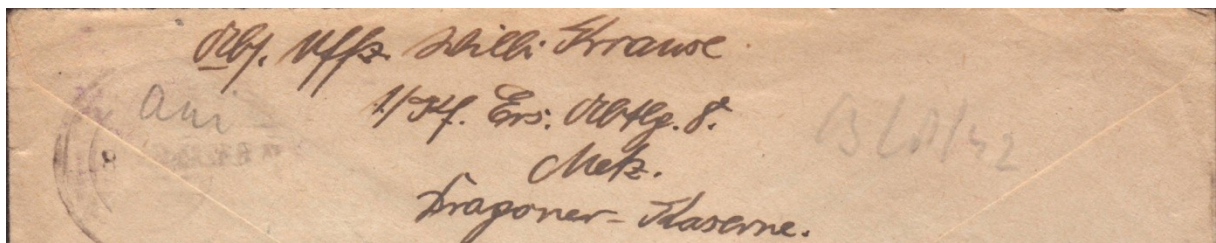 Abs. Uffz. Willi Krause
1./Kf. Ers. Abtlg. 8.
Metz.
Dragoner-Kaserne.